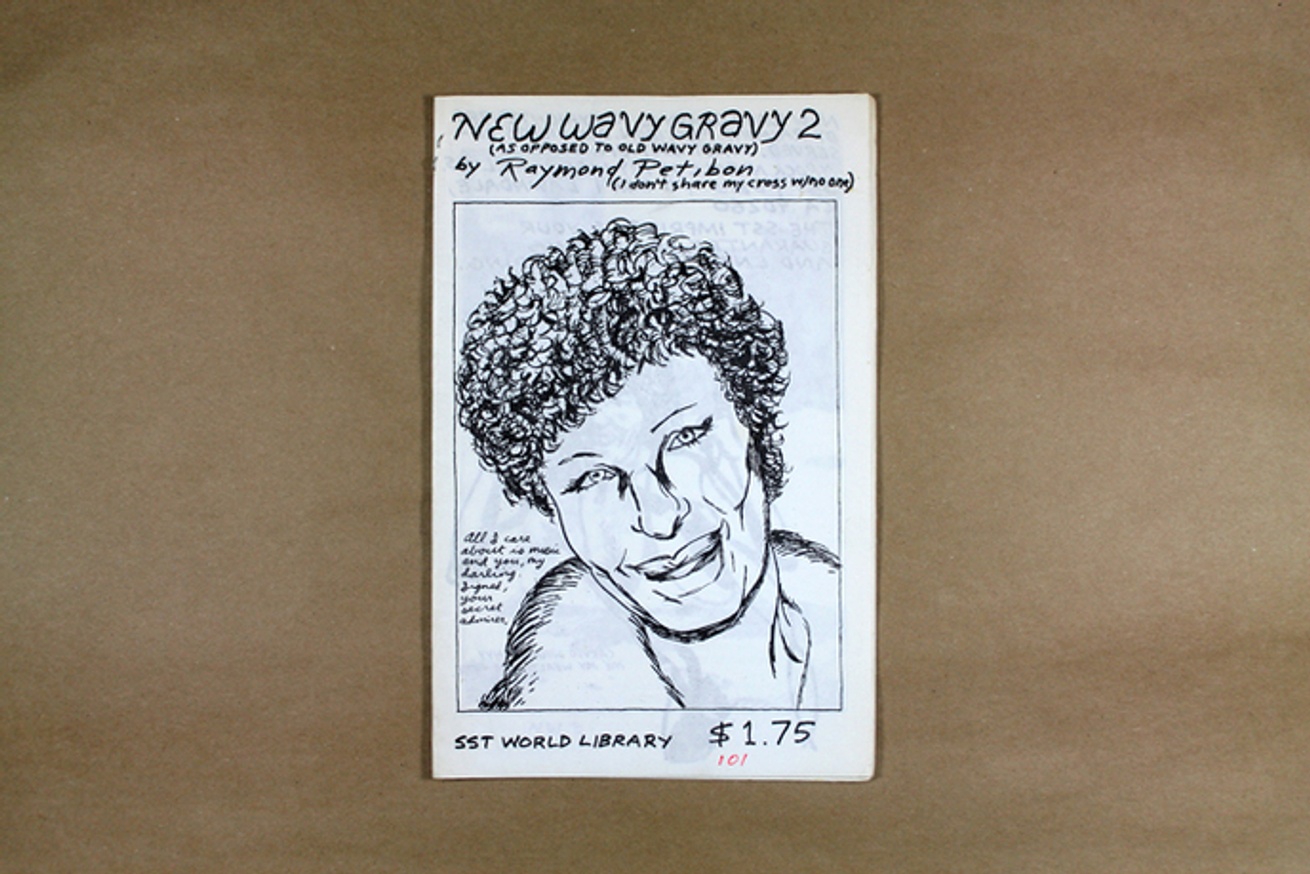 NEW WAVY GRAVY 2
(AS OPPOSED TO OLD WAVY GRAVY)
by Raymond Pettibon
(I don't share my cross w/no one)
All I care
about is music
and you, my
darling.
Signed,
your
secret
admirer.
SST WORLD LIBRARY $1.75
101